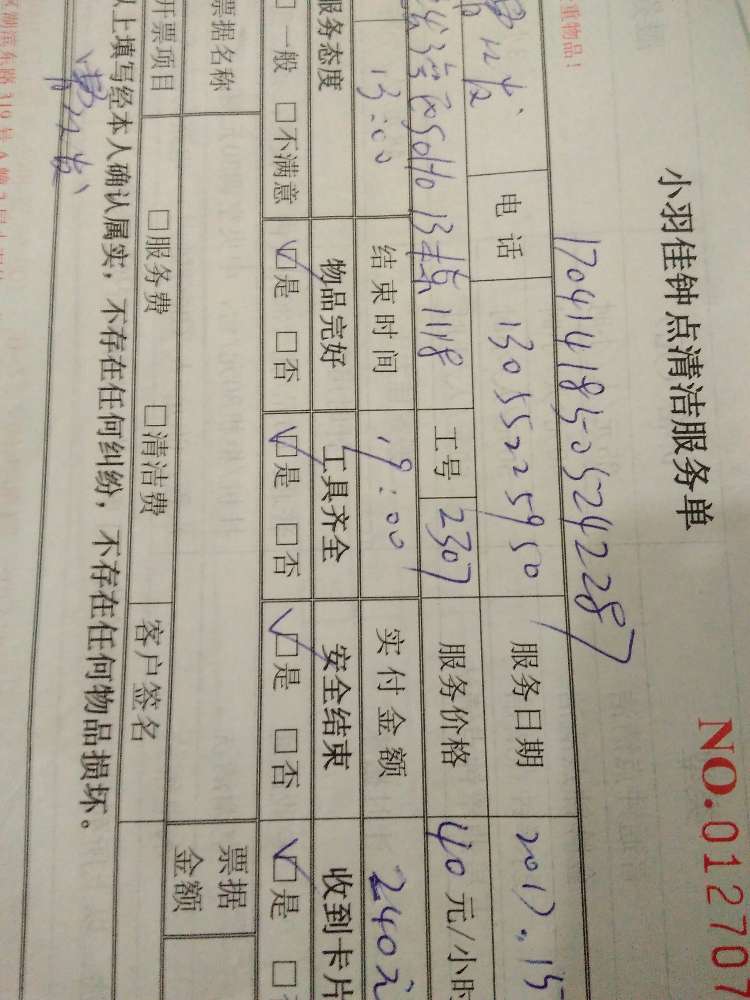 重物品！
小羽佳钟点清洁服务单
NO.012707
17041418505242287
电话 13055225950 服务日期 2017.15
13栋1118 工号 2307 服务价格 40元/小时
13:00 结束时间 19:00 实付金额 240元
服务态度 物品完好 工具齐全 安全结束 收到卡片
□一般 □不满意 ☑是 □否 ☑是 □否 ☑是 □否 ☑是 □
票据名称 票据金额
开票项目 □服务费 □清洁费 客户签名
以上填写经本人确认属实，不存在任何纠纷，不存在任何物品损坏。